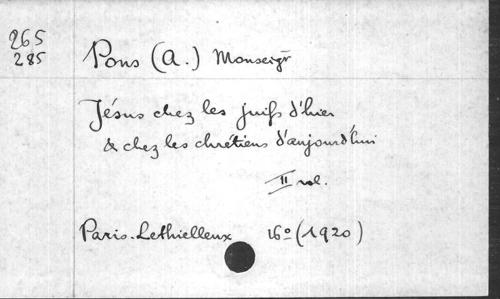 265
285
Pons (A.) Monseigr
Jésus chez les juifs d'hier
& chez les chrétiens d'aujourd'hui
II vol.
Paris. Lethielleux 16º (1920)